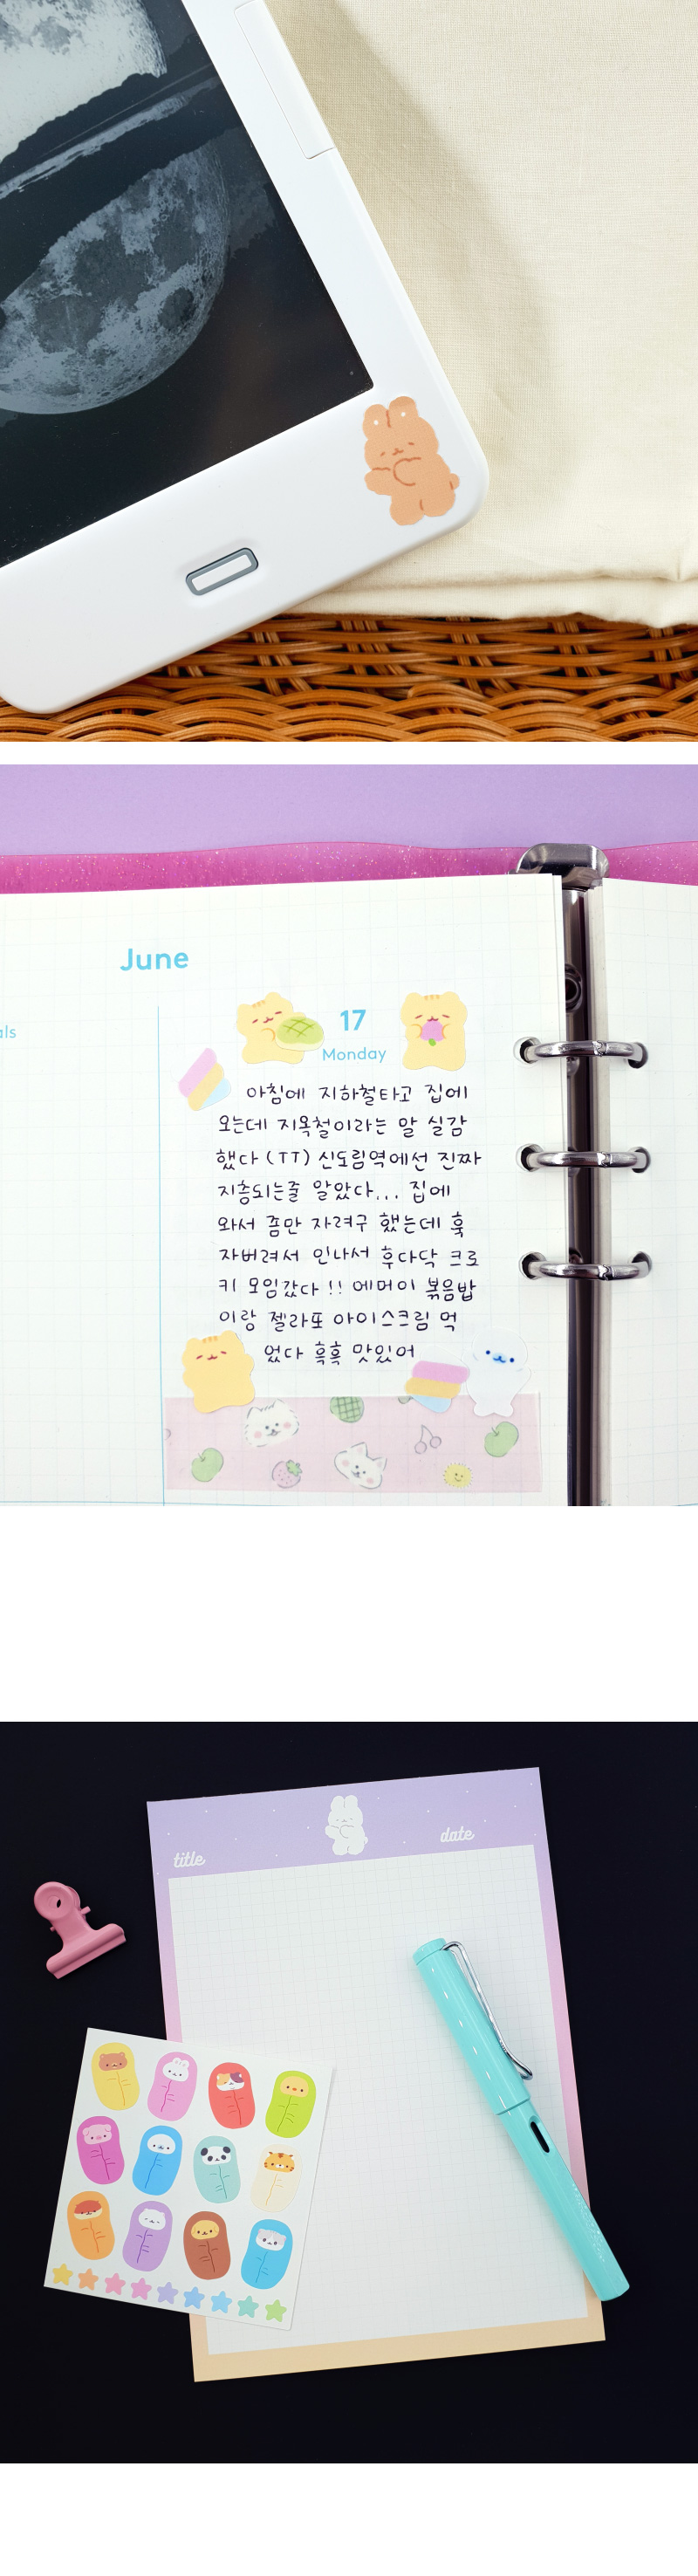 June
als
17
Monday
아침에 지하철타고 집에
오는데 지옥철이라는 말 실감
했다 (TT) 신도림역에선 진짜
지층되는줄 알았다... 집에
와서 좀만 자려구 했는데 훅
자버려서 인나서 후다닥 크로
키 모임갔다 !! 에머이 볶음밥
이랑 젤라포 아이스크림 먹
었다 흑흑 맛있어
title
date